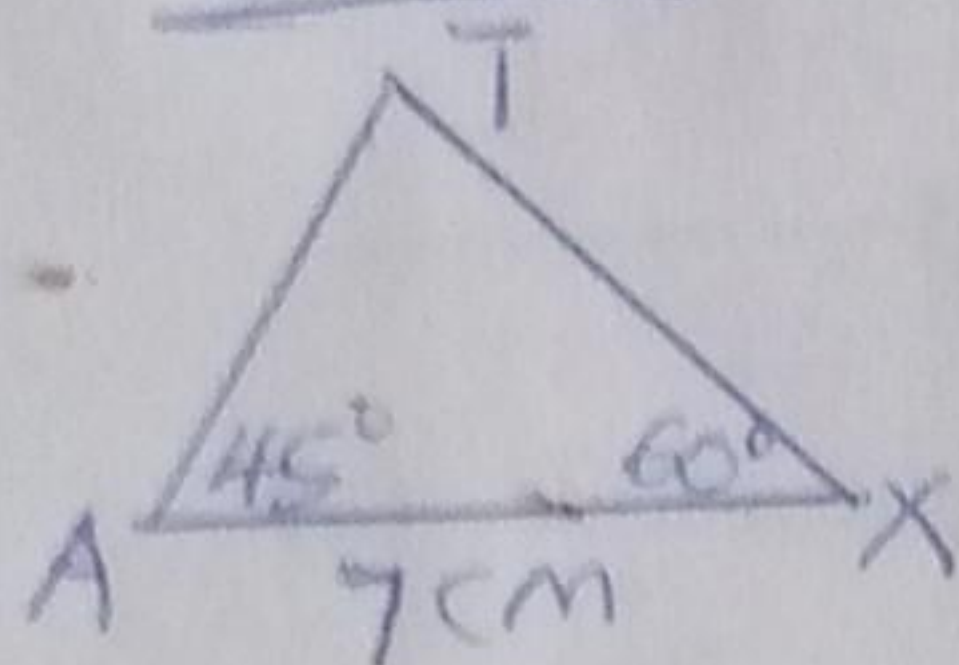 T
45° 60°
A X
7cm